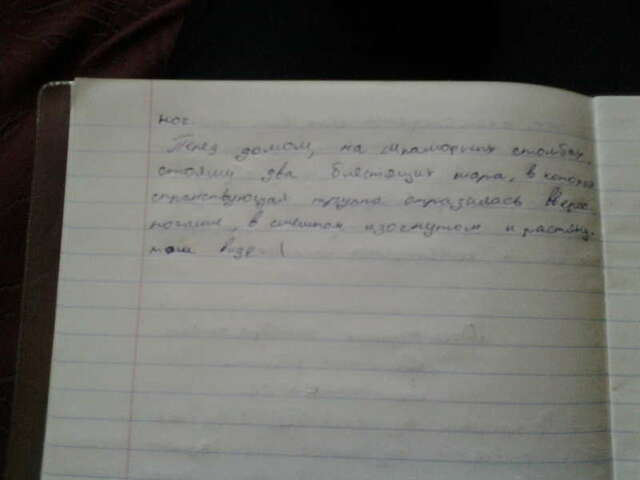 ног.
Перед домом, на мраморных столбах,
стояли два блестящих шара, в которых
странствующая труппа отразилась вверх
ногами, в смешном изогнутом и растяну-
том виде.